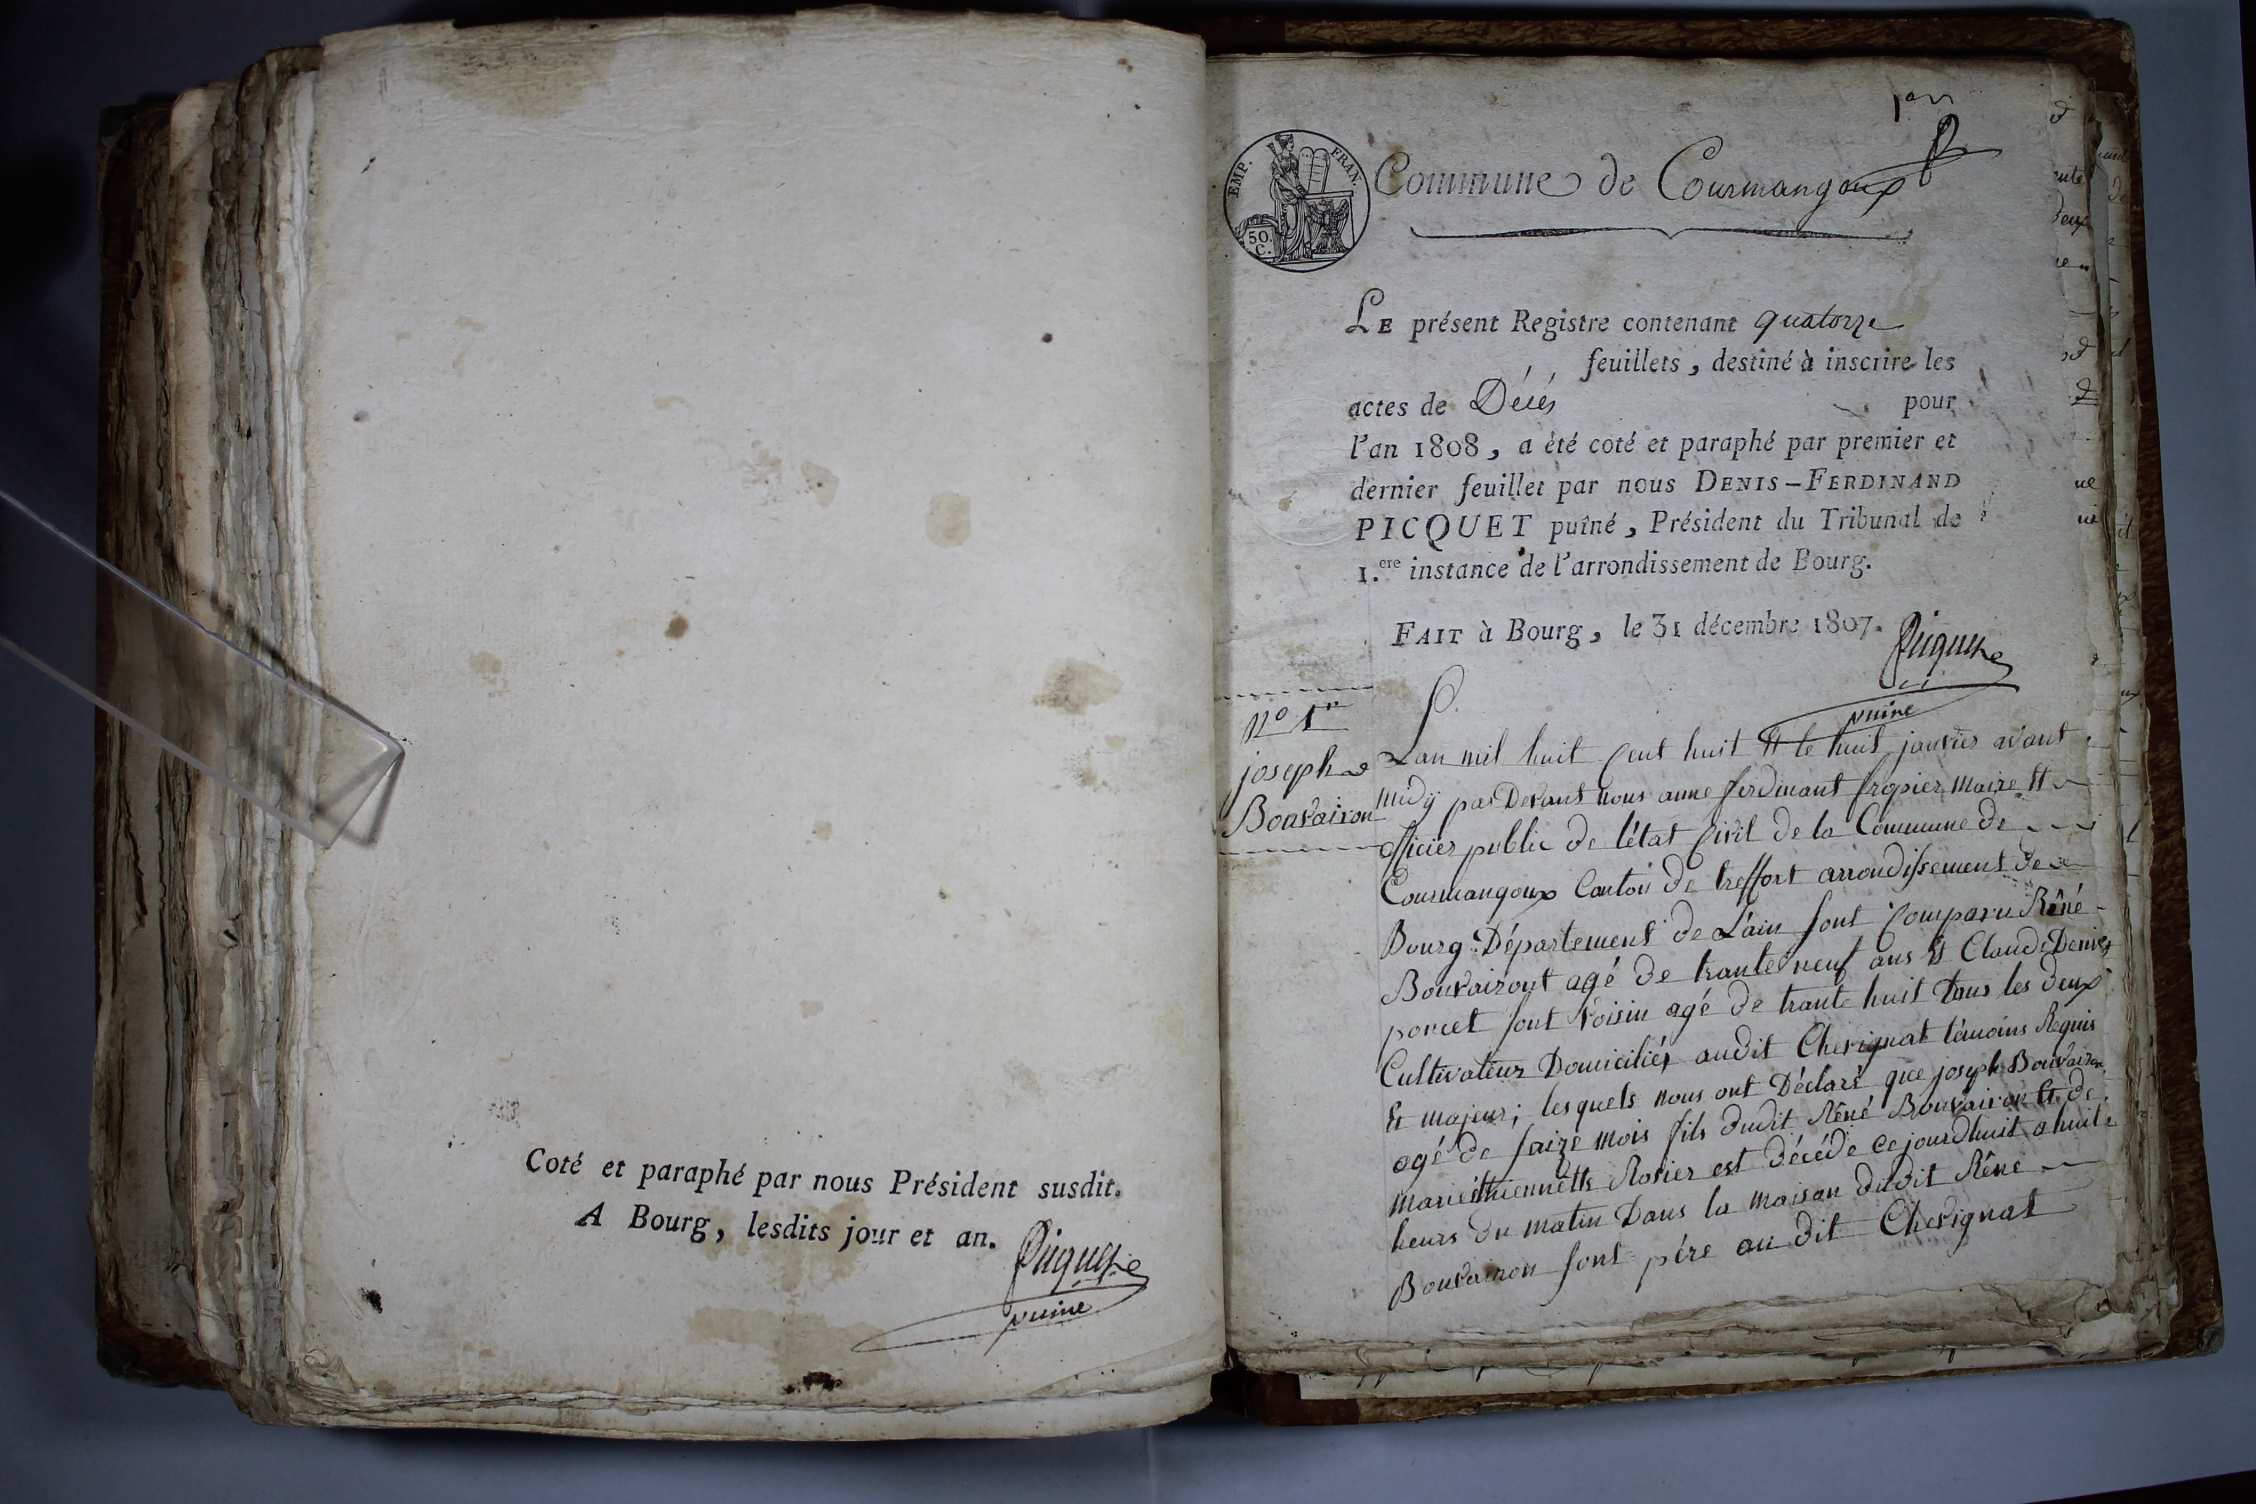 Coté et paraphé par nous Président susdit.
A Bourg, lesdits jour et an.
Picquet
puiné
1er
EMP. FRAN.
50.
C.
Commune de Courmangoux
LE présent Registre contenant quatorze
feuillets, destiné à inscrire les
actes de Décés pour
l'an 1808, a été coté et paraphé par premier et
dernier feuillet par nous DENIS-FERDINAND
PICQUET puîné, Président du Tribunal de
1.ere instance de l'arrondissement de Bourg.
FAIT à Bourg, le 31 décembre 1807.
Picquet
puiné
No 1er
joseph
Bouvairon
Lan mil huit Cent huit Et le huit janvier avant
midÿ par Devant nous anne ferdinant fropier Maire Et
officier public de létat Civil de la Commune de
Courmangoux Canton de treffort arrondissement de
Bourg Département de Lain sont Comparu Réné
Bouvairont agé de trante neuf ans Et Claude Denies
poncet sont voisin agé de trante huit Tous les deux
Cultivateur Domiciliés audit Chevignat témoins Requis
Et majeur; lesquels nous ont Déclaré que joseph Bouvairon
agé de saize mois fils dudit Réné Bouvairon Et de
marie éthiennette Rosier est décédé ce jourdhuit a huit
heurs du matin Dans la maison dudit Réné
Bouvairon sont pére au dit Chevignat